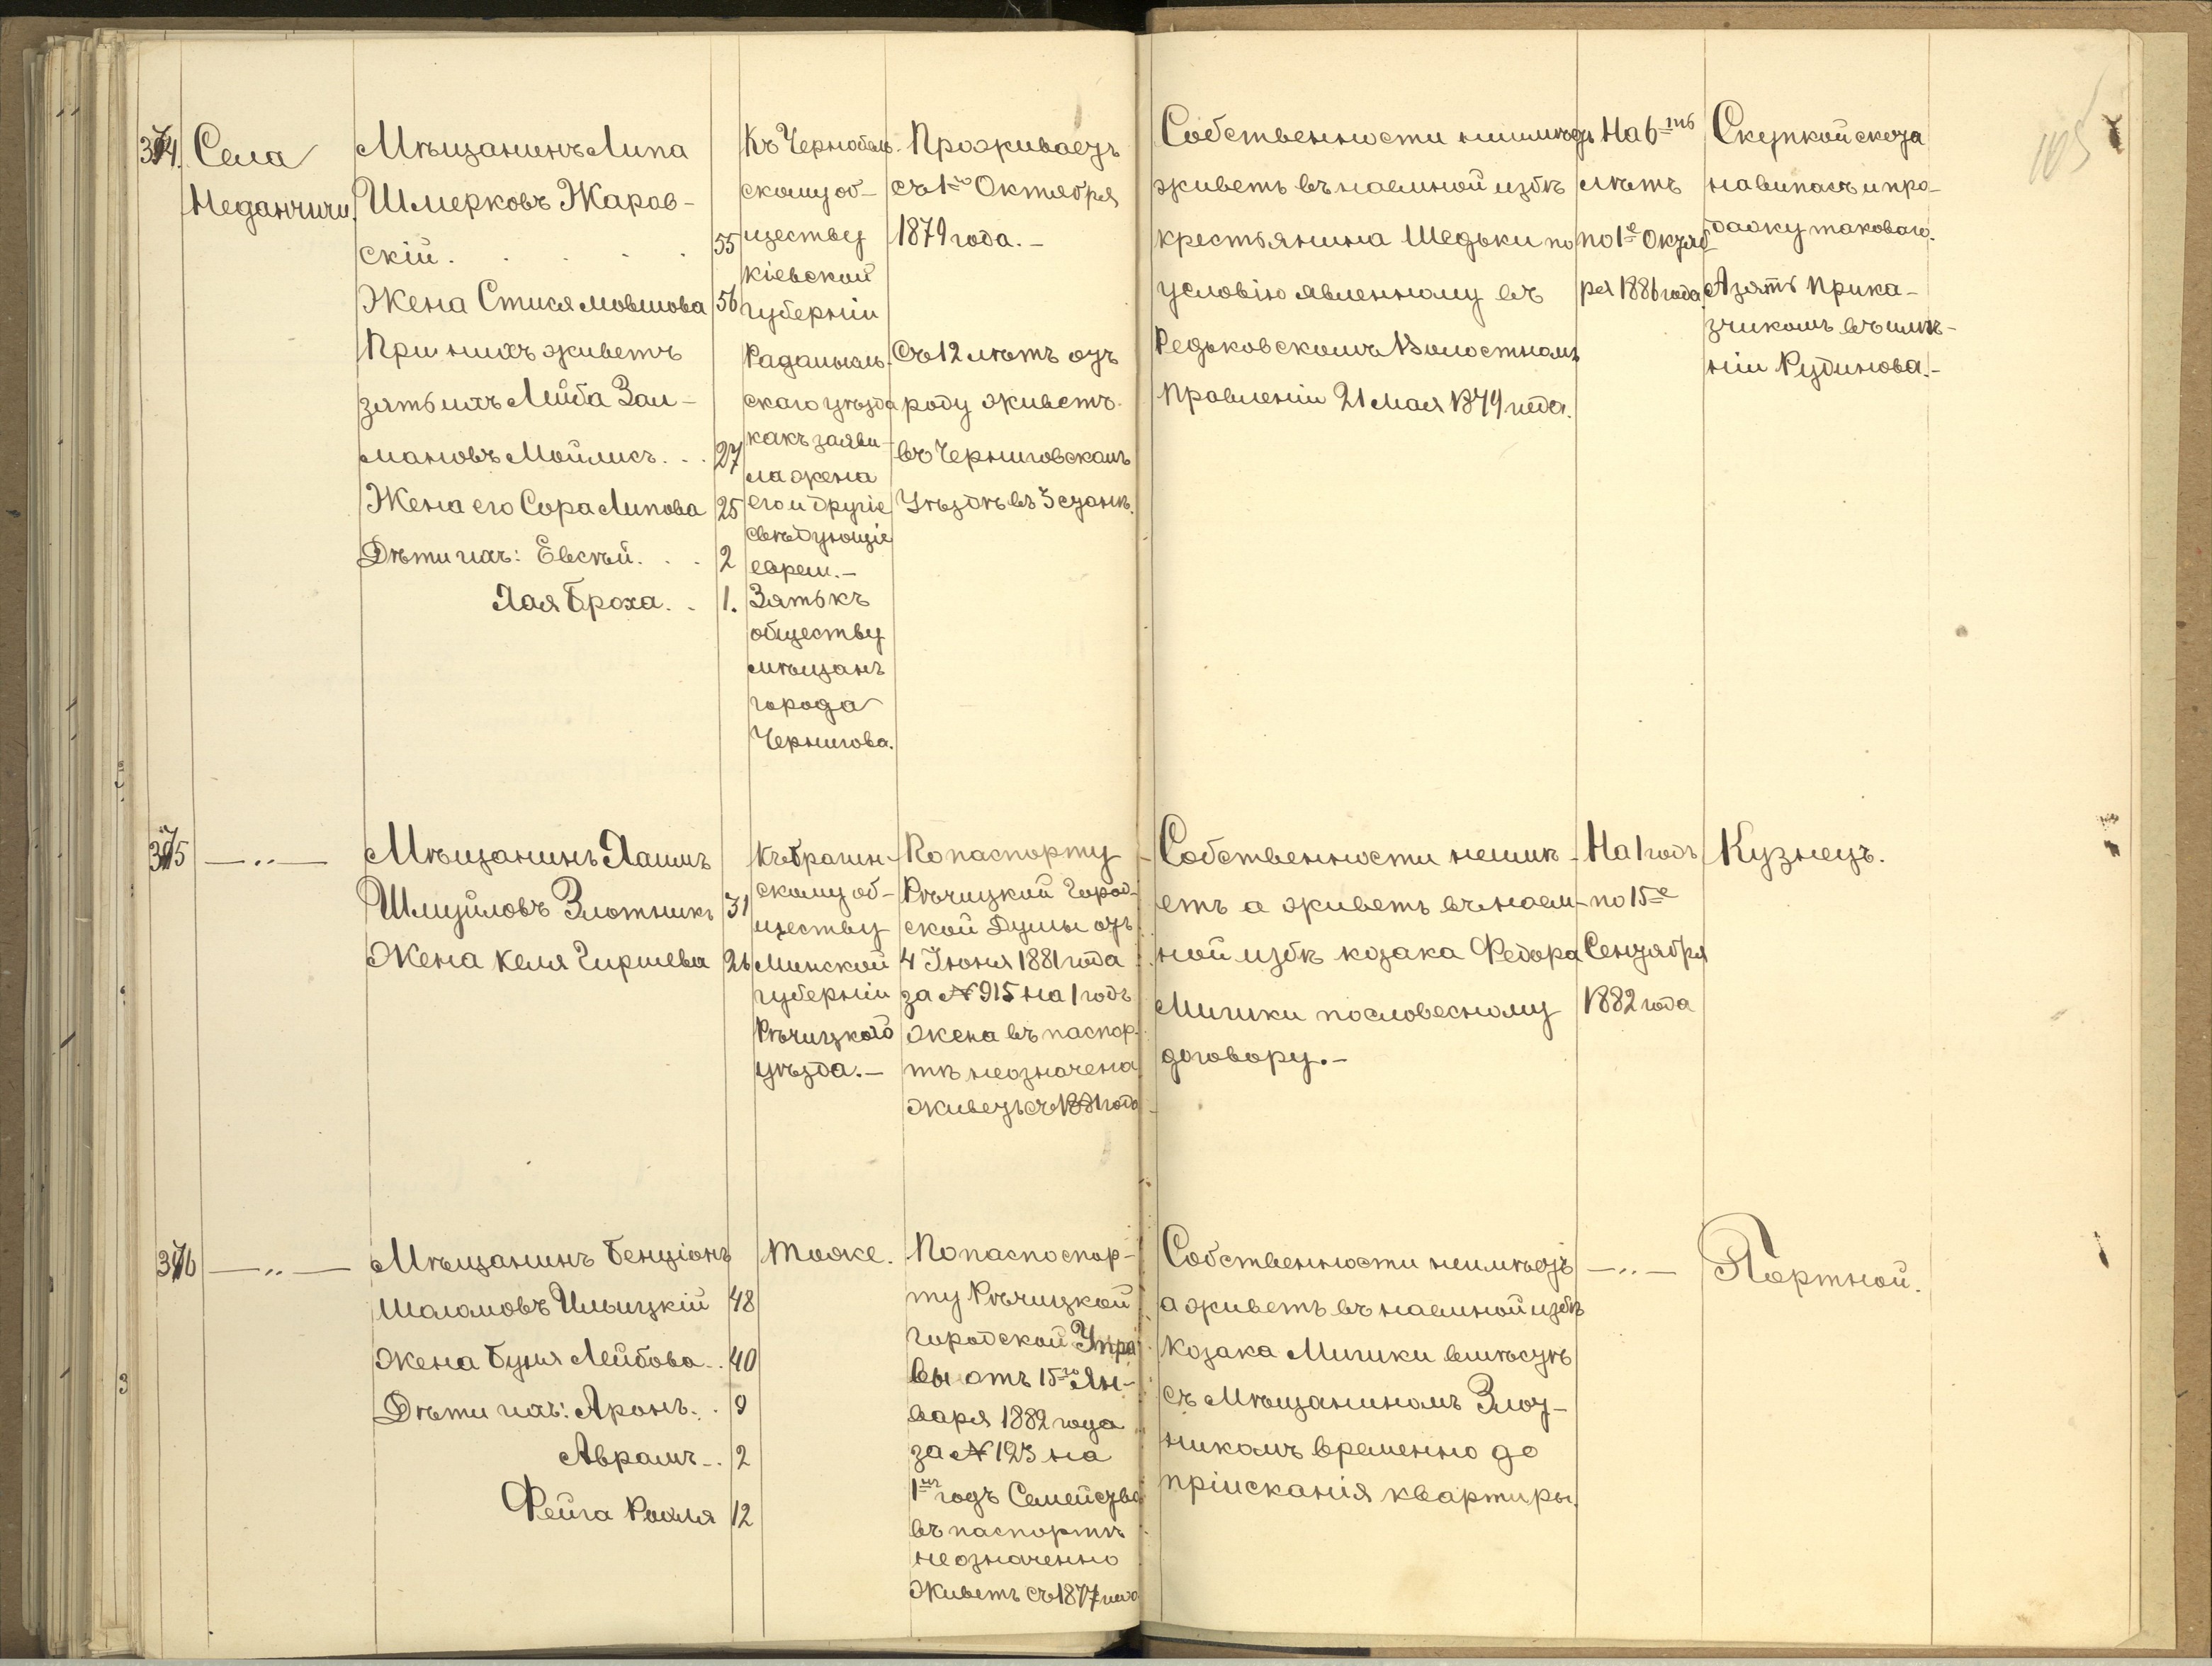 374.
Села
Неданчичи.
Мѣщанинъ Липа
Шмерковъ Жаров-
скій. . . . . 55
Жена Стися Мовшова 56
При нихъ живетъ
зять ихъ Лейба Зал-
мановъ Мойлисъ. . . 27
Жена его Сора Липова 25
Дѣти ихъ: Евсѣй. . . 2
Хая Броха. . 1.
Къ Чернобыль-
скому об-
ществу
Кіевской
губерніи
Радамысль-
скаго уѣзда
какъ заяви-
ла жена
его и другіе
свѣдующіе
евреи.-
Зять къ
обществу
мѣщанъ
города
Чернигова.
Проживаетъ
съ 1го Октября
1879 года.-
Съ 12 лѣтъ отъ
роду живетъ
въ Черниговскомъ
Уѣздѣ въ 3 станѣ.
Собственности неимѣетъ
живетъ въ наемной избѣ
крестьянина Шедьки по
условію явленному въ
Редьковскомъ Волостномъ
Правленіи 21 Мая 1879 года.
На 6ть
лѣтъ
по 1е Октяб
ря 1886 года.
Скупкой скота
на випасъ и про-
дажу таковаго.
А зять прика-
зчикомъ въ имѣ-
ніи Рудинова.-
105
375
—〃—
Мѣщанинъ Хаимъ
Шмуйловъ Злотникъ 31
Жена Келя Гиршева 26
Къ Брагин-
скому об-
ществу
Минской
губерніи
Рѣчицкаго
уѣзда.-
По паспорту
Рѣчицкой Город-
ской Думы отъ
4 Іюня 1881 года
за № 915 на 1 годъ
жена въ паспор-
тѣ неозначена
живетъ съ 1881 года
Собственности неимѣ-
етъ а живетъ въ наем-
ной избѣ козака Федора
Мишки пословесному
договору.-
На 1 годъ
по 15е
Сентября
1882 года
Кузнецъ.
376
—〃—
Мѣщанинъ Бенціонъ
Шаломовъ Ильицкій 48
Жена Буня Лейбова. . 40
Дѣти ихъ: Аронъ. . 9
Аврамъ. . 2
Фейга Рохля 12
Тоже.
По паспоспор-
ту Рѣчицкой
Городской Упра
вы отъ 15го Ян-
варя 1882 года
за № 123 на
1нъ годъ Семейство
въ паспортѣ
неозначенно
Живетъ съ 1877 года
Собственности неимѣетъ
а живетъ въ наемной избѣ
Козака Мишки вмѣстѣ
съ Мѣщаниномъ Злот-
никомъ временно до
пріисканія квартиры.
—〃—
Портной.